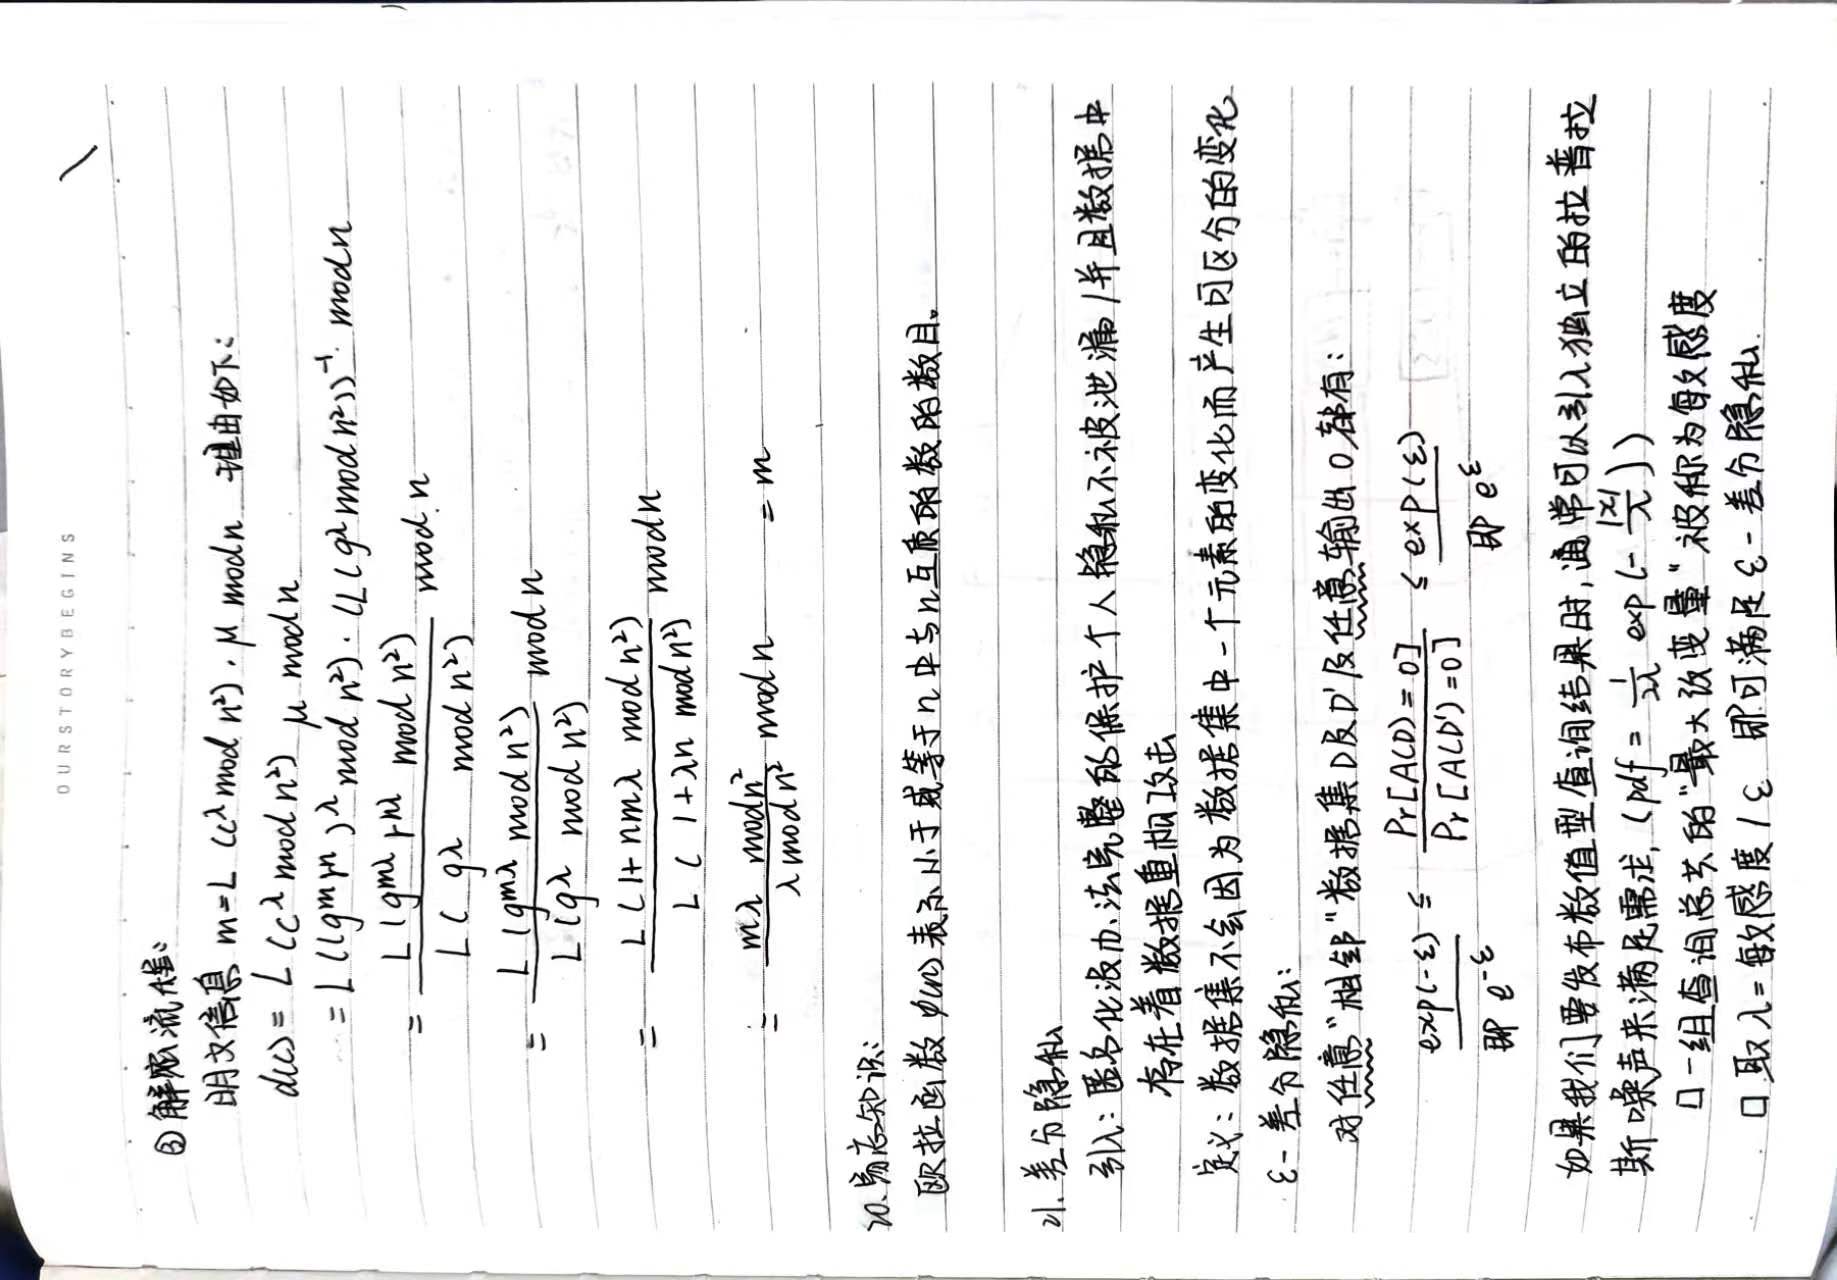 OURSTORYBEGINS
③解密流程:
明文信息 m=L (c^λ mod n²)·μ mod n 理由如下:
d(c)= L (c^λ mod n²) μ mod n
= L ((g^m r^n)^λ mod n²)·(L(g^λ mod n²))^-1 mod n
= L (g^mλ r^nλ mod n²) / L( g^λ mod n²) mod n
= L (g^mλ mod n²) / L (g^λ mod n²) mod n
= L (1+ nmλ mod n²) / L ( 1+λn mod n²) mod n
= mλ mod n² / λ mod n² mod n = m
20. 易忘知识:
欧拉函数 φ(n) 表示小于或等于n中与n互质的数的数目。
21. 差分隐私
引入: 匿名化没办法完整的保护个人隐私不被泄漏/并且数据中
存在着数据重构攻击
定义: 数据集不会因为数据集中一个元素的变化而产生可区分的变化
ε- 差分隐私:
对任意"相邻"数据集D及D'及任意输出O都有:
exp(-ε) ≤ Pr[A(D)=O] / Pr[A(D')=O] ≤ exp(ε)
即 e^-ε 即 e^ε
如果我们要发布数值型查询结果时,通常可以引入独立的拉普拉
斯噪声来满足需求, (pdf = 1/2λ exp(- |x|/λ))
□ 一组查询总共的"最大改变量"被称为敏感度
□ 取λ=敏感度/ε 即可满足ε-差分隐私.